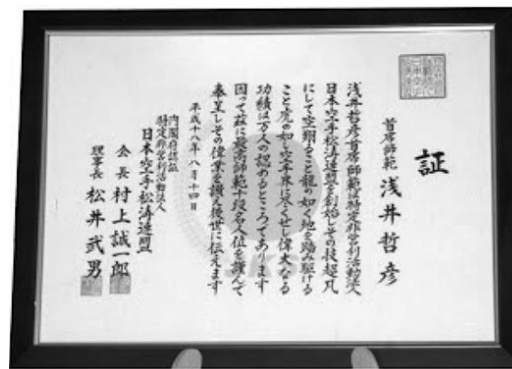 証
首席師範 浅井哲彦
浅井哲彦首席師範は特定非営利活動法人
日本空手松涛連盟を創始しその技超凡
にして空翔ること龍の如く地を踏み駆ける
こと虎の如し空手界に尽くせし偉大なる
功績は万人の認めるところであります
因って茲に最高師範十段名人位を謹んで
奉呈しその偉業を讃え後世に伝えます
平成十八年八月十四日
内閣府認証
特定非営利活動法人
日本空手松涛連盟
会長 村上誠一郎
理事長 松井武男